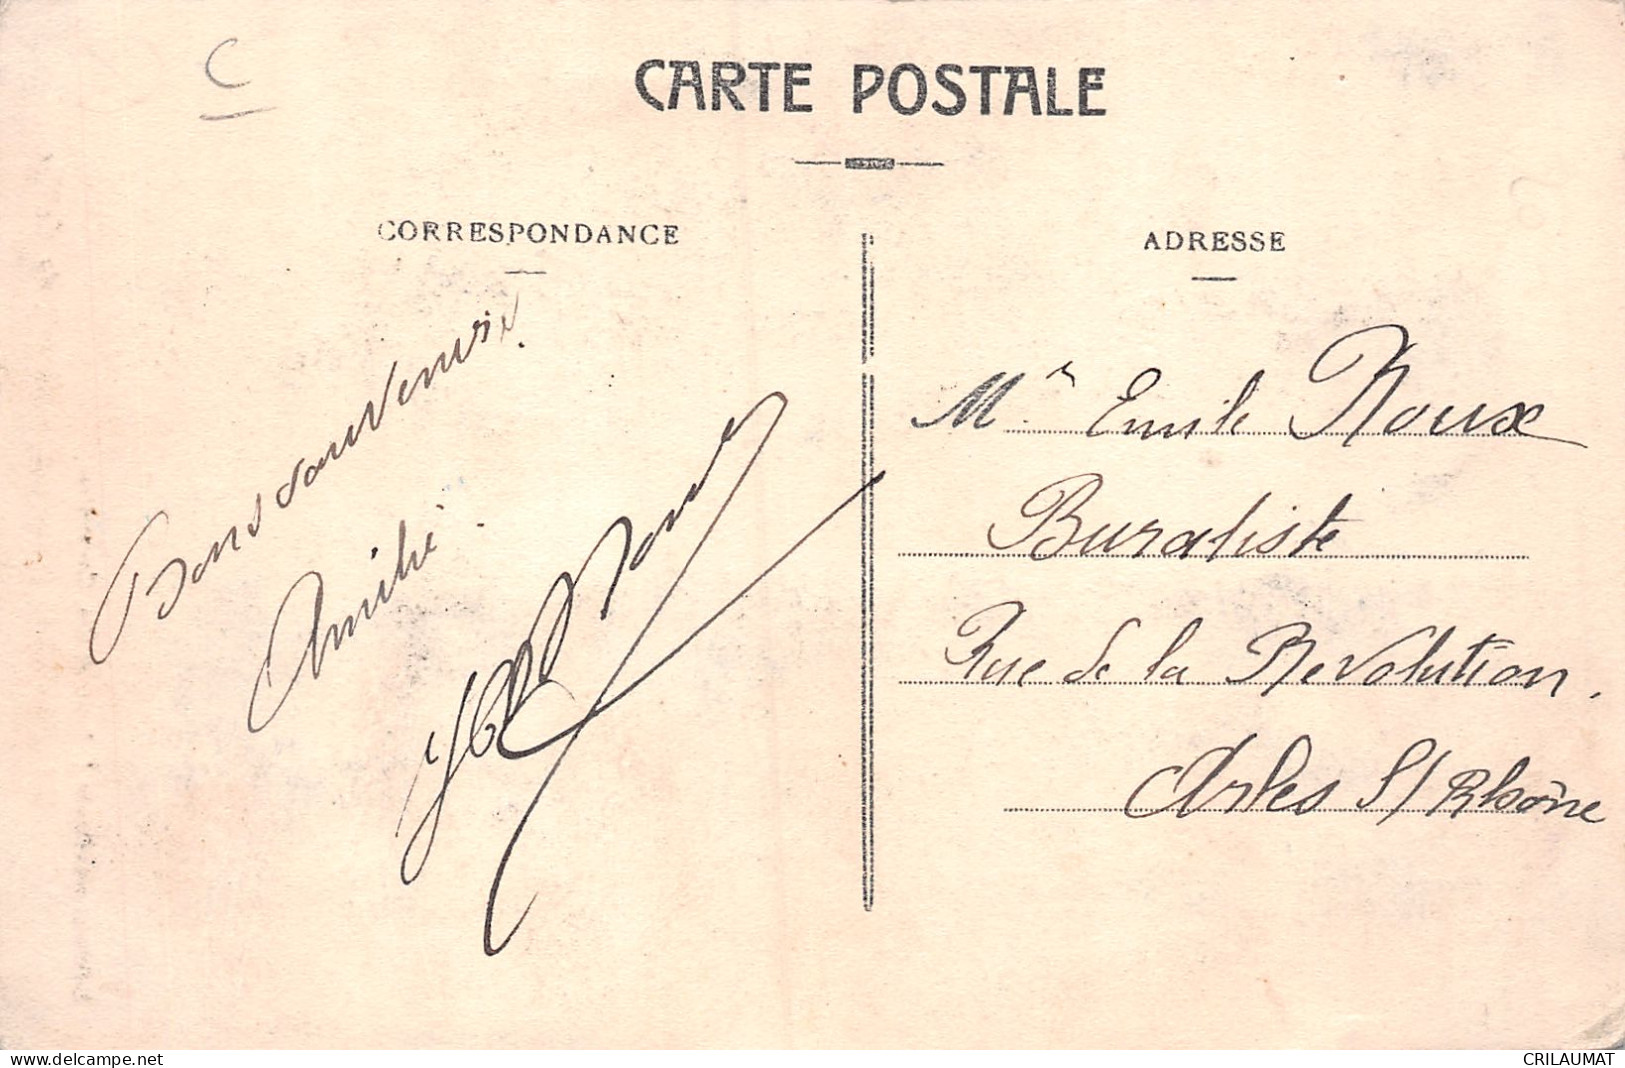 C
CARTE POSTALE
CORRESPONDANCE
ADRESSE
Bons souvenirs
Amitié
Mr Emile Roux
Buraliste
Rue de la Revolution.
Arles S/ Rhône
delcampe.net
CRILAUMAT